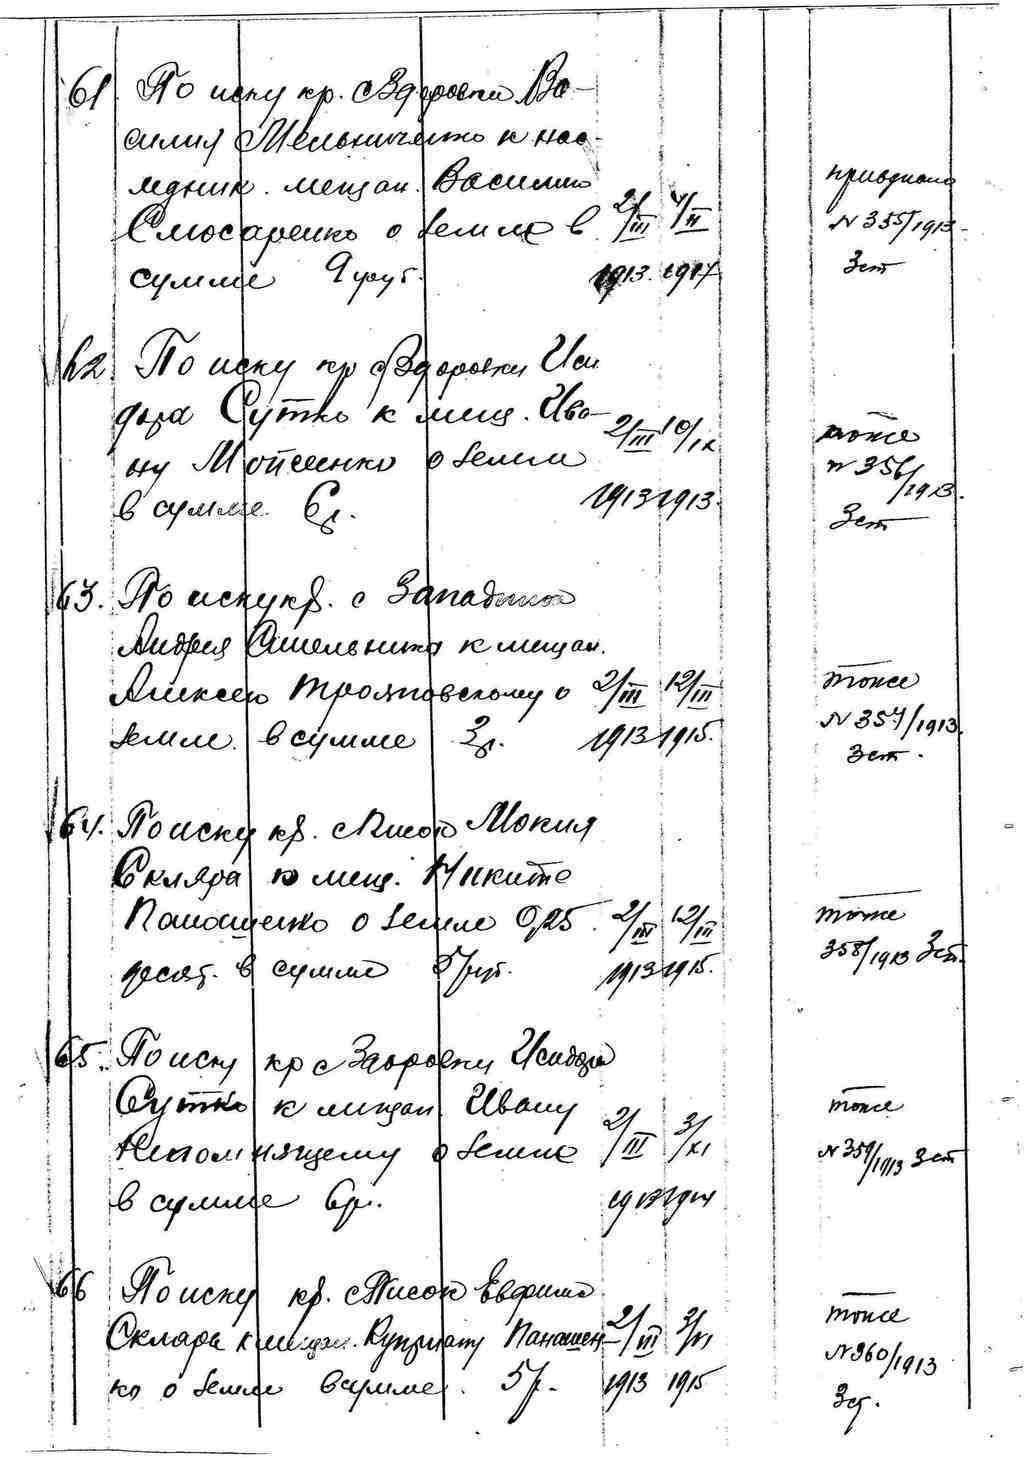 61. По иску кр. с Здоровки Ва-
силия Мельниченко к нас-
ледник. мещан. Василию
Слюсаренко о земле в 2/III 4/II
сумме 9 руб. 1913. 1914
приодном
N 355/1913
3 ст
62. По иску кр с Здоровки Иси
дора Сутко к мещ. Ива-
ну Мотсенко о земли 2/III 10/IX
в сумме 6 р. 1913 1913.
тоже
N 356/1913.
3 ст
63. По иску кр. с
Андрея к мещан.
Алексею Трояновскому о 2/III 12/III
земле. в сумме 3 р. 1913 1915.
тоже
N 357/1913.
3 ст.
64. По иску кр. с Писок Мокия
Скляра к мещ. Никите
Панашенко о земле 0,25 2/III 12/III
десят. в сумме 5 руб. 1913 1915.
тоже
358/1913 3 ст.
65. По иску кр с Здоровки Исидора
Сутко к мещан. Ивану
Непомнящему о земле 2/III 3/XI
в сумме 6 р. 1913 1914
тоже
N 359/1913 3 ст
66 По иску кр. с Писок Евфима
Скляра к мещан. Куприяну Панашен- 2/III 3/VI
ко о земле в сумме. 5 р. 1913 1915
тоже
N 360/1913
3 ст.